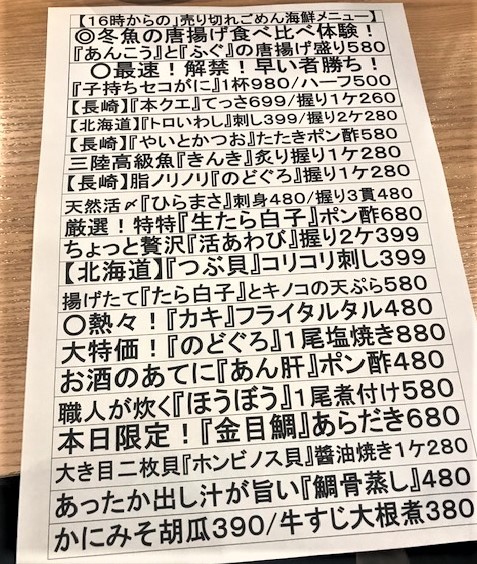 【16時からの」売り切れごめん海鮮メニュー】
◎冬魚の唐揚げ食べ比べ体験！
『あんこう』と『ふぐ』の唐揚げ盛り580
〇最速！解禁！早い者勝ち！
『子持ちセコがに』1杯980/ハーフ500
【長崎】『本クエ』てっさ699/握り1ケ260
【北海道】『トロいわし』刺し399/握り2ケ280
【長崎】『やいとかつお』たたきポン酢580
三陸高級魚『きんき』炙り握り1ケ280
【長崎】脂ノリノリ『のどぐろ』握り1ケ280
天然活〆『ひらまさ』刺身480/握り3貫480
厳選！特特『生たら白子』ポン酢680
ちょっと贅沢『活あわび』握り2ケ399
【北海道】『つぶ貝』コリコリ刺し399
揚げたて『たら白子』とキノコの天ぷら580
〇熱々！『カキ』フライタルタル480
大特価！『のどぐろ』1尾塩焼き880
お酒のあてに『あん肝』ポン酢480
職人が炊く『ほうぼう』1尾煮付け580
本日限定！『金目鯛』あらだき680
大き目二枚貝『ホンビノス貝』醬油焼き1ケ280
あったか出し汁が旨い『鯛骨蒸し』480
かにみそ胡瓜390/牛すじ大根煮380